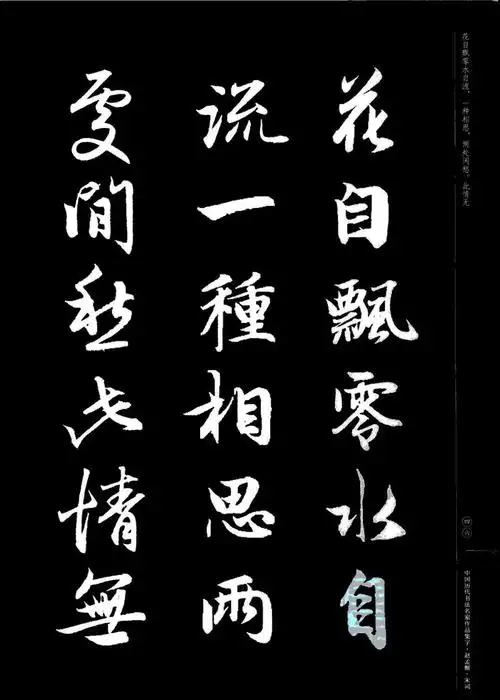 花自飄零水自
流一種相思兩
處閒愁此情無
花自飘零水自流。一种相思，两处闲愁。此情无
四六
中国历代书法名家作品集字·赵孟頫·宋词